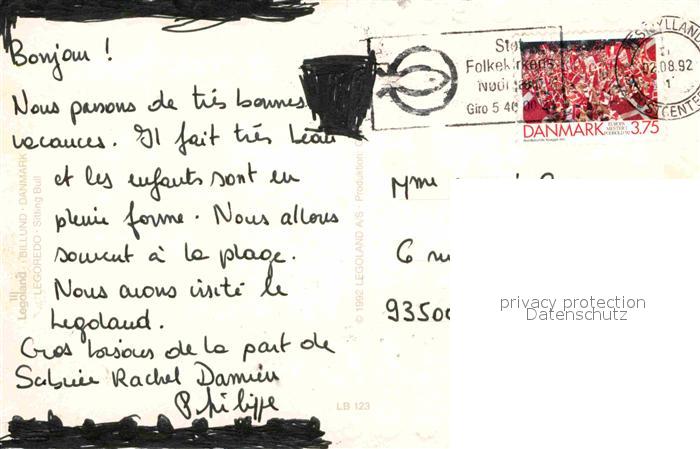 Bonjour !
Nous passons de très bonnes
vacances. Il fait très beau
et les enfants sont en
pleine forme. Nous allons
souvent à la plage.
Nous avons visité le
Legoland.
Gros bisous de la part de
Sabine Rachel Damien
Philippe
Legoland · BILLUND · DANMARK
LEGOREDO · Sitting Bull
© 1992 LEGOLAND A/S · Produktion:
LB 123
Støt
Folkekirkens
Nødhjælp
Giro 5 40
02.08.92
1
EUROPAMESTER I
FODBOLD '92
DANMARK 3.75
Mme
6
93500
privacy protection
Datenschutz